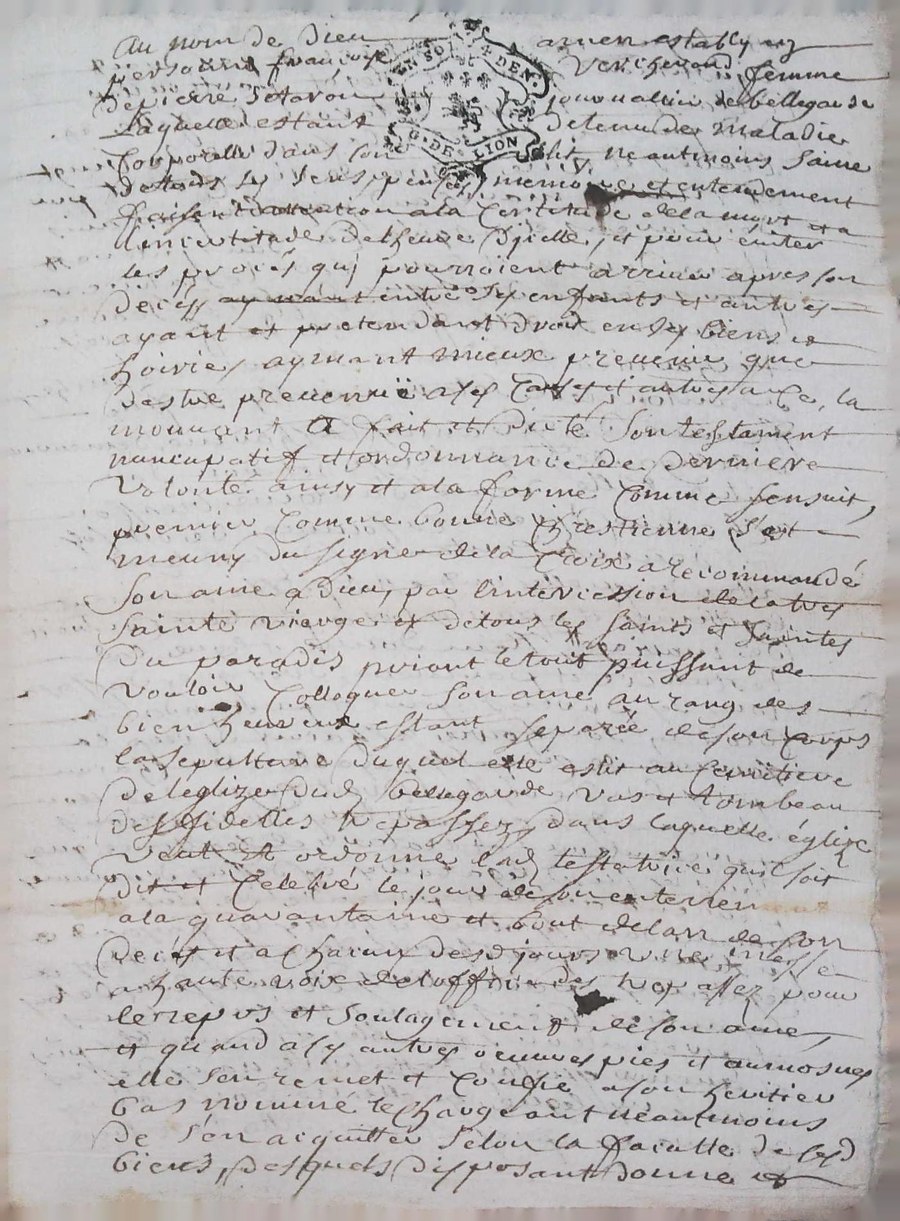 Au nom de Dieu amen estably en
personne françoise Verchevaud femme
de pierre journallier de bellegarde
Laquelle estant detenue de maladie
Corporelle dans son lit neautmoins saine
de tous sy sens, memoire et entendement
faisant attention a la Certitude de la mort et a
l'incertitude de lheure dicelle, et pour éviter
les procès quj pourroient arriver apres son
decés entre sy enfants et autres
ayant et pretendant droit en sy biens et
hoirie, aymant mieux prevenir que
destre prevenüe a ses Causes et autres a ce, la
mouvant A fait et dicté Son testament
nuncupatif et ordonnance de derniere
Volonté ainsy et a la forme Comme sensuit,
premier Comme bonne Chrestienne s'est
meuny du signe de la Croix a recommandé
Son ame a Dieu, par l'intercession de la tres
Sainte vierge et de tous les saints et saintes
Du paradis priant le tout puissant de
vouloir Colloquer son ame au rang des
bien heureux estant separée de son Corps
la sepulture duquel elle eslit au Cemitiere
de leglize dud bellegarde Vas et tombeau
des fidelles trepassez, dans laquelle églize
veut et ordonne lad testatrice quil soit
dit et Celebré le jour de son enterrement
a la quarantaine et bout de lan de son
decés et a chacun desd jours une messe
a haute voix de loffice des trepassez pour
le repos et soulagement de son ame,
et quand a sy autres oeuvres pies et aumosnes
elle s'en remet et Confie a son heritier
bas nommé le chargeant neautmoins
de s'en acquitter selon la faculté de sesd
biens, desquels disposant donne et
G. DE LION